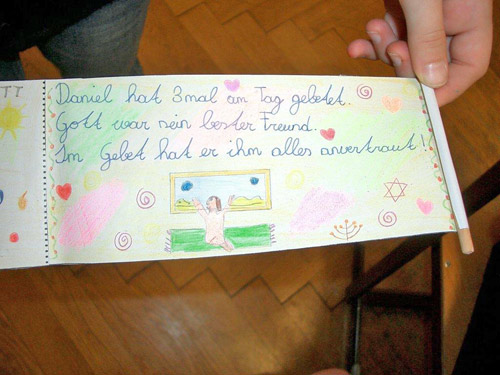 Daniel hat 3mal am Tag gebetet.
Gott war sein bester Freund.
Im Gebet hat er ihm alles anvertraut!